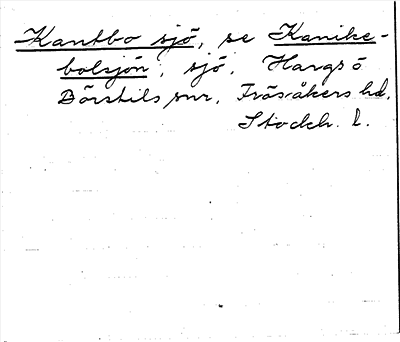 Kantbo sjö, se Kanike-
bolsjön, sjö, Hargs o
Börstils snr, Frösåkers hd,
Stockh. l.